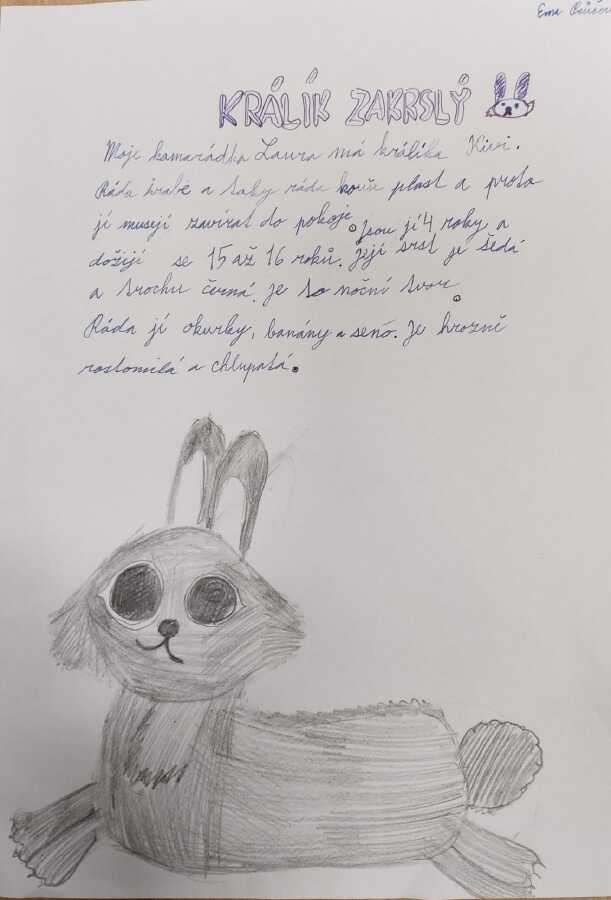 Ema
KRÁLÍK ZAKRSLÝ
Moje kamarádka Laura má králíka Kiwi.
Ráda hrabe a taky ráda kouše plast a proto
jí musejí zavírat do pokoje. Jsou jí 4 roky a
dožijí se 15 až 16 roků. Její srst je šedá
a trochu černá. Je to noční tvor.
Ráda jí okurky, banány a seno. Je hrozně
roztomilá a chlupatá.